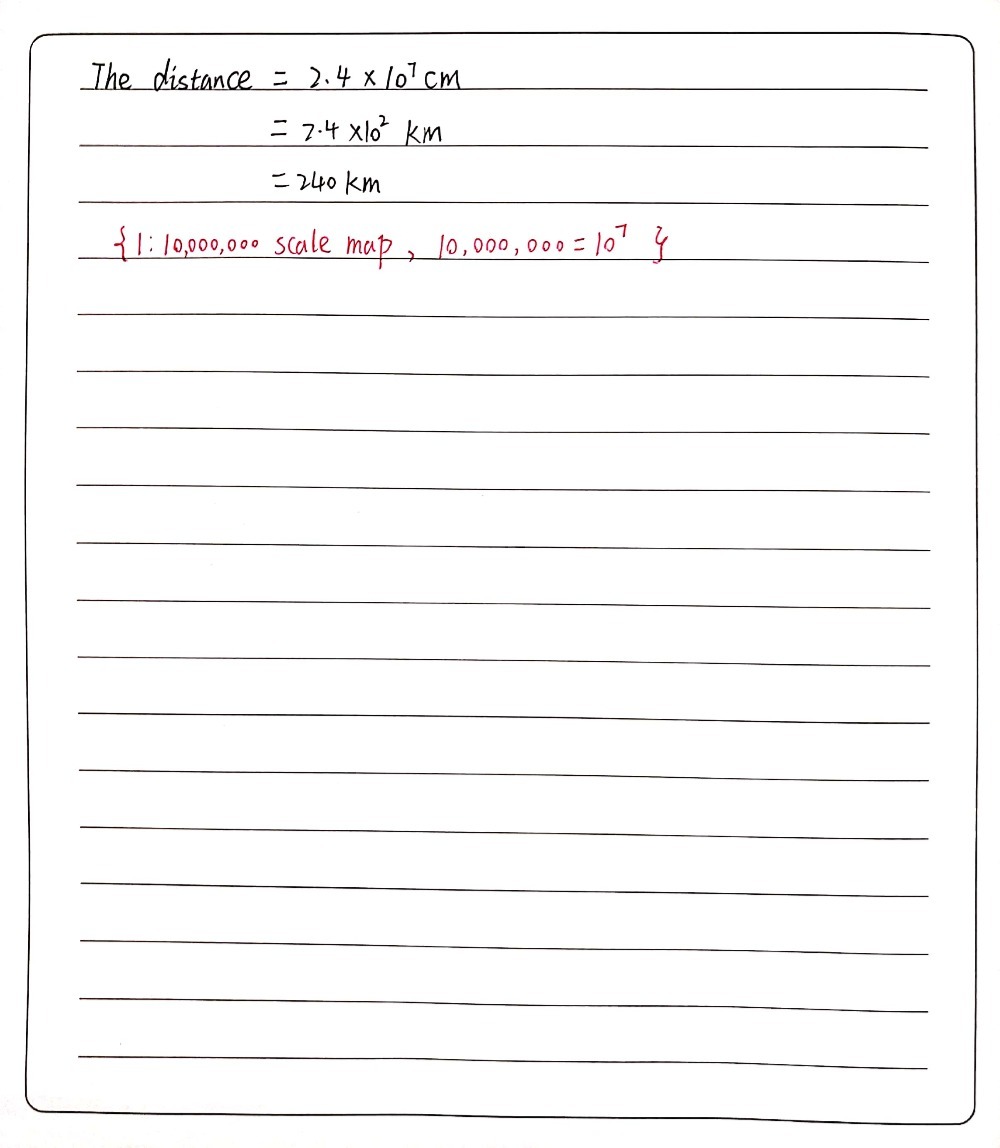 The distance = 2.4 × 10⁷ cm
= 2.4 ×10² km
= 240 km
{1:10,000,000 scale map , 10,000,000 = 10⁷ }